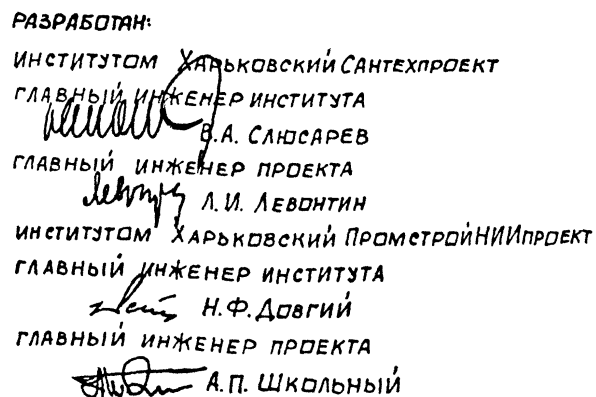 РАЗРАБОТАН:
ИНСТИТУТОМ ХАРЬКОВСКИЙ САНТЕХПРОЕКТ
ГЛАВНЫЙ ИНЖЕНЕР ИНСТИТУТА
В.А. СЛЮСАРЕВ
ГЛАВНЫЙ ИНЖЕНЕР ПРОЕКТА
Л.И. ЛЕВОНТИН
ИНСТИТУТОМ ХАРЬКОВСКИЙ ПРОМСТРОЙНИИПРОЕКТ
ГЛАВНЫЙ ИНЖЕНЕР ИНСТИТУТА
Н.Ф. ДОВГИЙ
ГЛАВНЫЙ ИНЖЕНЕР ПРОЕКТА
А.П. ШКОЛЬНЫЙ